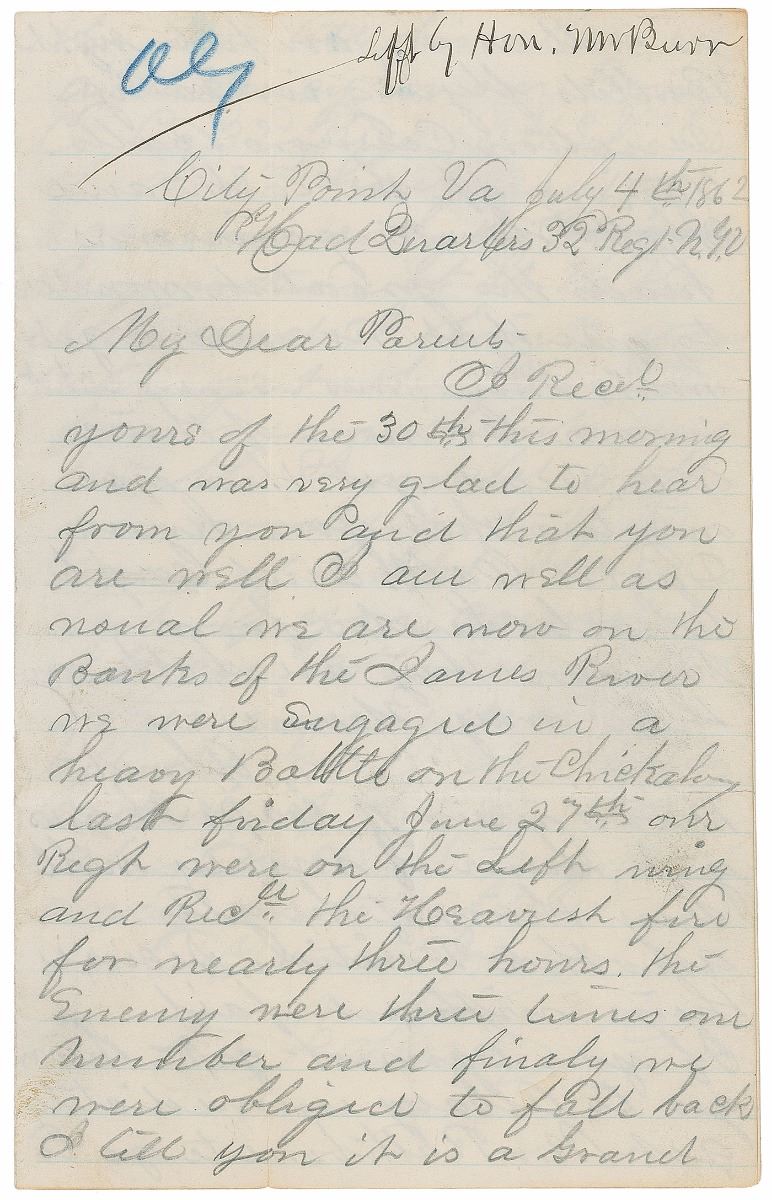 Left by Hon. Mr Burr
City Point Va July 4th 1862
Head Quarters 32 Regt N.Y.V
My Dear Parents
I Recd
yours of the 30th this morning
and was very glad to hear
from you and that you
are well I am well as
usual we are now on the
Banks of the James River
we were Engaged in a
heavy Battle on the
last firday June 27th our
Regt were on the Left wing
and Recd the Heaviest fire
for nearly three hours. the
Enemy were three times our
number and finaly we
were obliged to fall back
I tell you it is a Grand